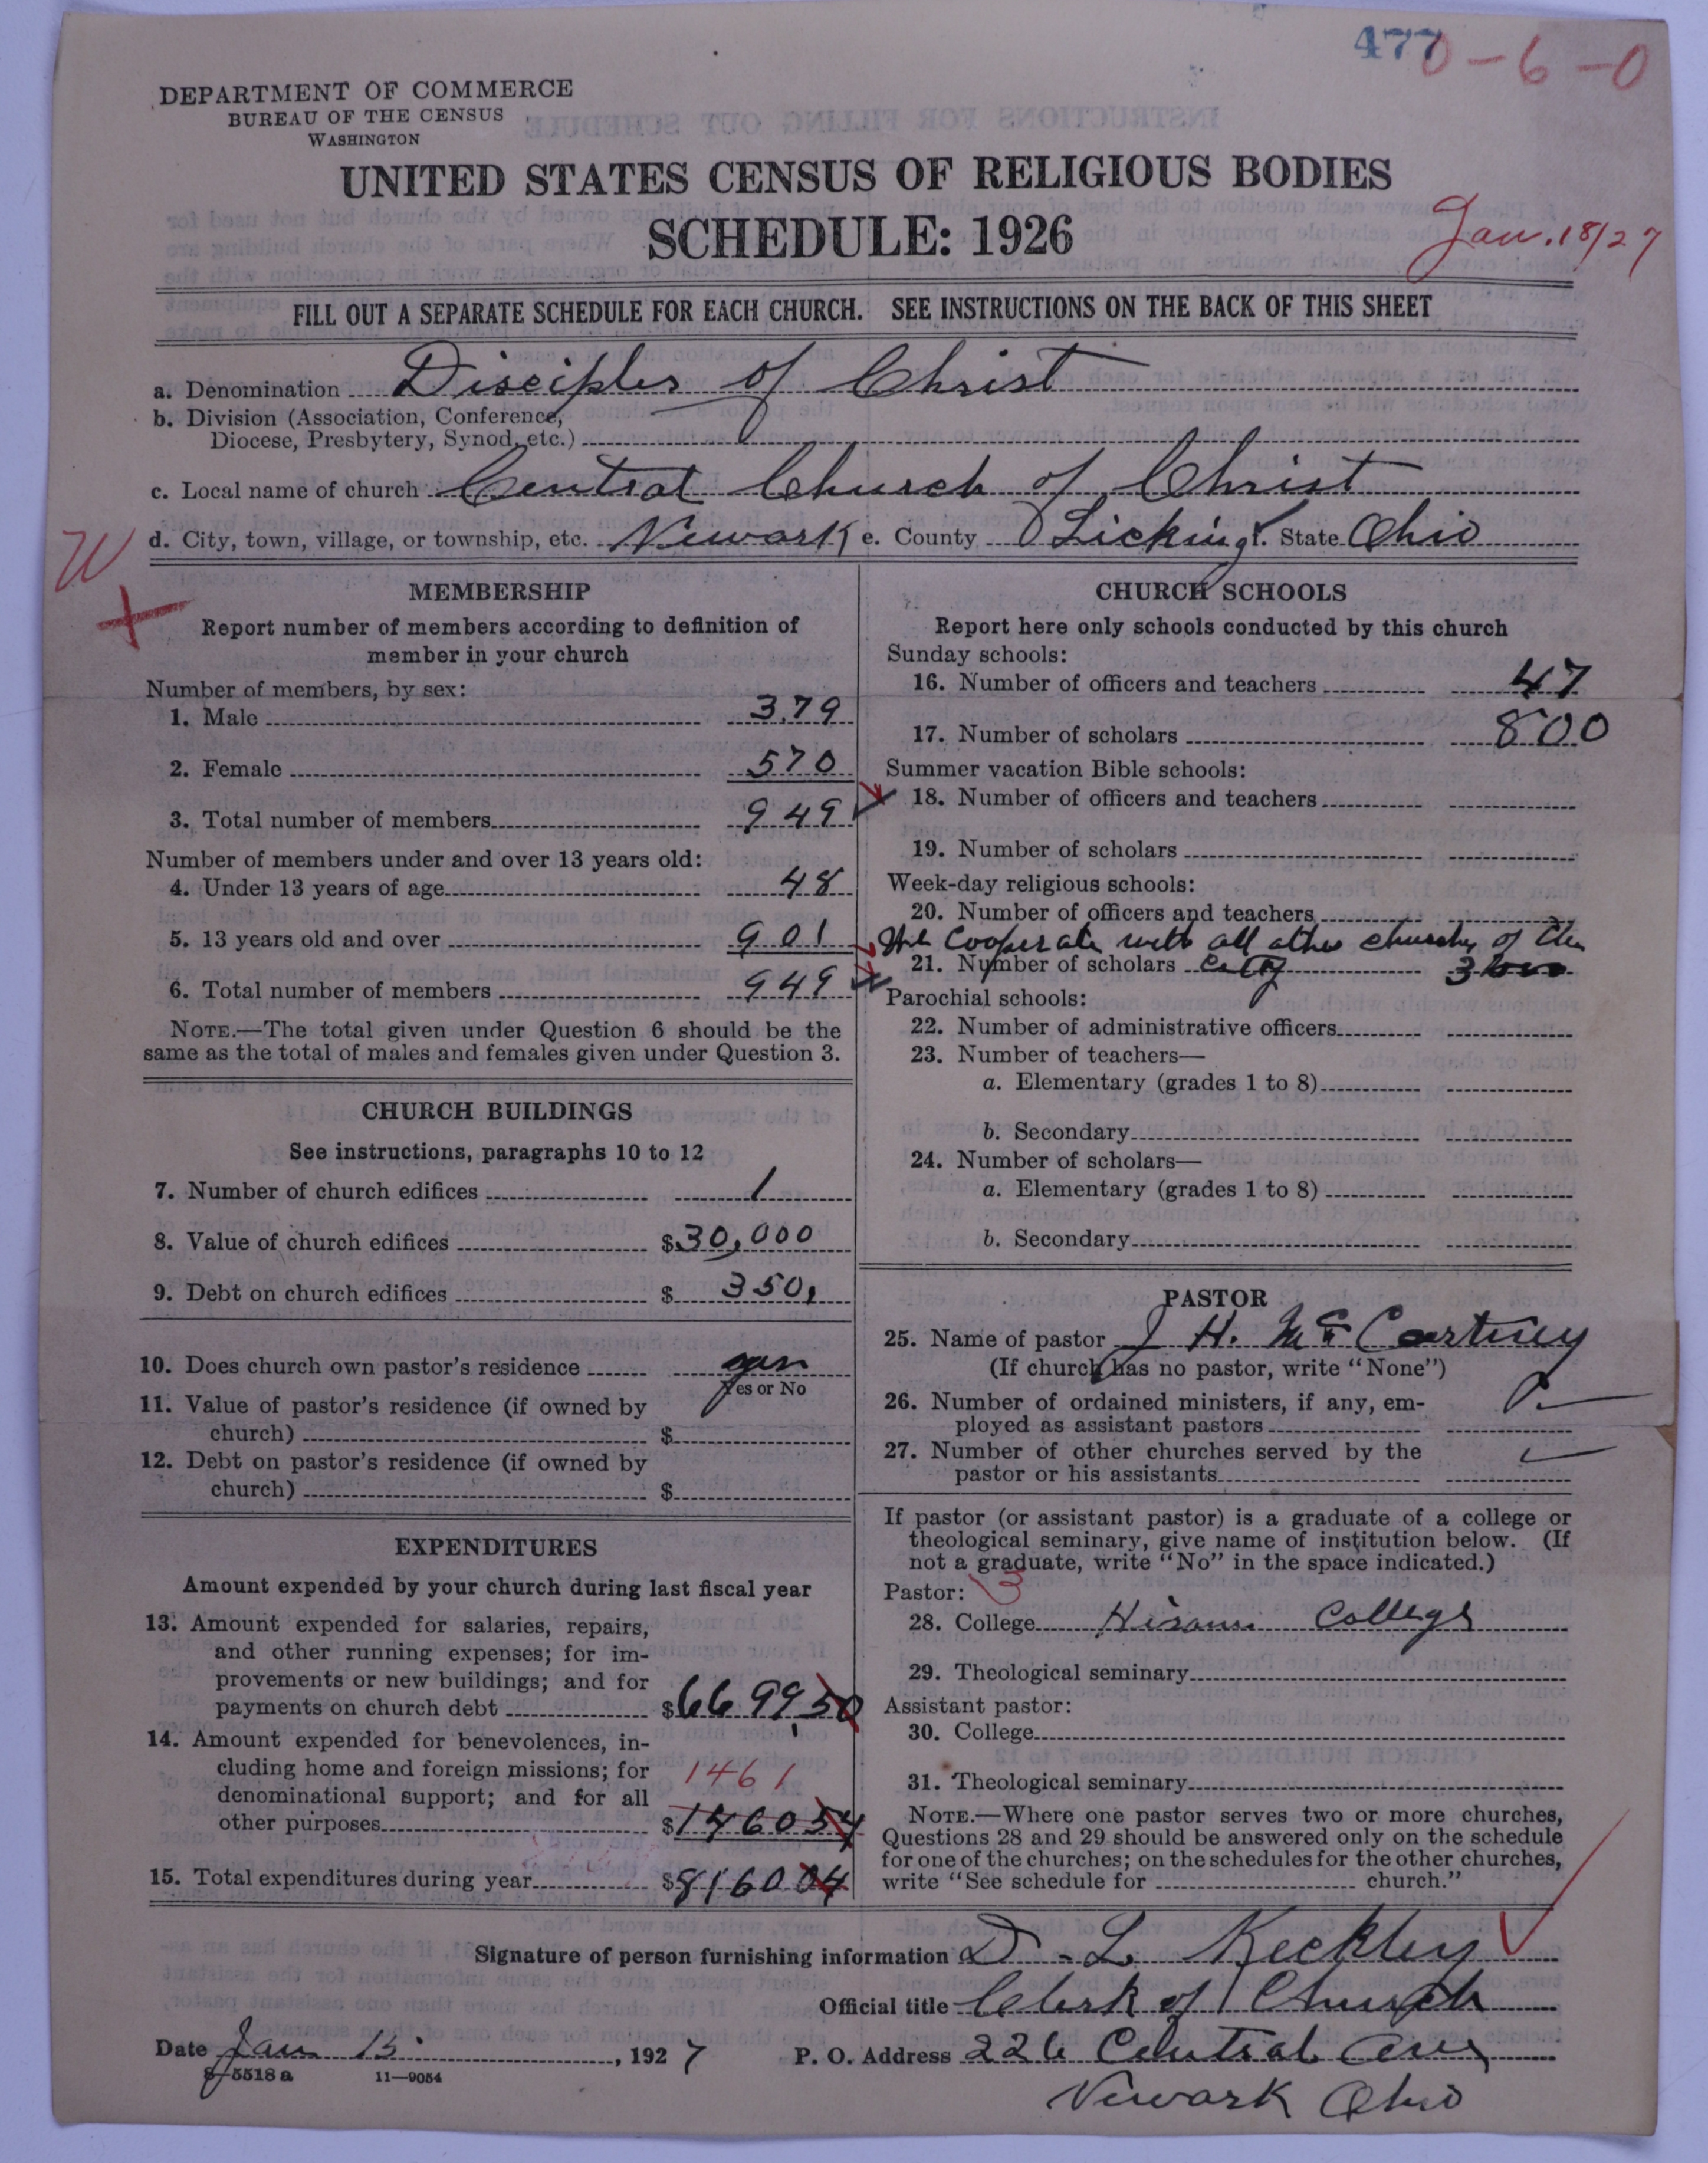 477
0-6-0
DEPARTMENT OF COMMERCE
BUREAU OF THE CENSUS
WASHINGTON
UNITED STATES CENSUS OF RELIGIOUS BODIES
SCHEDULE: 1926
Jan. 18/27
FILL OUT A SEPARATE SCHEDULE FOR EACH CHURCH. SEE INSTRUCTIONS ON THE BACK OF THIS SHEET
a. Denomination Disciples of Christ
b. Division (Association, Conference,
Diocese, Presbytery, Synod, etc.)
c. Local name of church Central Church of Christ
W d. City, town, village, or township, etc. Newark e. County Licking f. State Ohio
MEMBERSHIP
Report number of members according to definition of
member in your church
Number of members, by sex:
1. Male 379
2. Female 570
3. Total number of members 949
Number of members under and over 13 years old:
4. Under 13 years of age 48
5. 13 years old and over 901
6. Total number of members 949
NOTE.—The total given under Question 6 should be the
same as the total of males and females given under Question 3.
CHURCH BUILDINGS
See instructions, paragraphs 10 to 12
7. Number of church edifices 1
8. Value of church edifices $30,000
9. Debt on church edifices $ 350,
10. Does church own pastor's residence
Yes or No
11. Value of pastor's residence (if owned by
church) $
12. Debt on pastor's residence (if owned by
church) $
EXPENDITURES
Amount expended by your church during last fiscal year
13. Amount expended for salaries, repairs,
and other running expenses; for im-
provements or new buildings; and for
payments on church debt $6699,50
14. Amount expended for benevolences, in-
cluding home and foreign missions; for 1461
denominational support; and for all
other purposes $146054
15. Total expenditures during year $816004
CHURCH SCHOOLS
Report here only schools conducted by this church
Sunday schools:
16. Number of officers and teachers 47
17. Number of scholars 800
Summer vacation Bible schools:
18. Number of officers and teachers
19. Number of scholars
Week-day religious schools:
20. Number of officers and teachers
We Cooperate with all other churches of the
21. Number of scholars City
Parochial schools:
22. Number of administrative officers
23. Number of teachers—
a. Elementary (grades 1 to 8)
b. Secondary
24. Number of scholars—
a. Elementary (grades 1 to 8)
b. Secondary
PASTOR
25. Name of pastor J H. McCartney
(If church has no pastor, write "None")
26. Number of ordained ministers, if any, em-
ployed as assistant pastors
27. Number of other churches served by the
pastor or his assistants
If pastor (or assistant pastor) is a graduate of a college or
theological seminary, give name of institution below. (If
not a graduate, write "No" in the space indicated.)
Pastor: 3
28. College Hiram College
29. Theological seminary
Assistant pastor:
30. College
31. Theological seminary
NOTE.—Where one pastor serves two or more churches,
Questions 28 and 29 should be answered only on the schedule
for one of the churches; on the schedules for the other churches,
write "See schedule for church."
Signature of person furnishing information D. L. Keckley
Official title Clerk of Church
Date Jan 15, 1927 P. O. Address 226 Central Ave
8-5518 a 11—9054
Newark Ohio